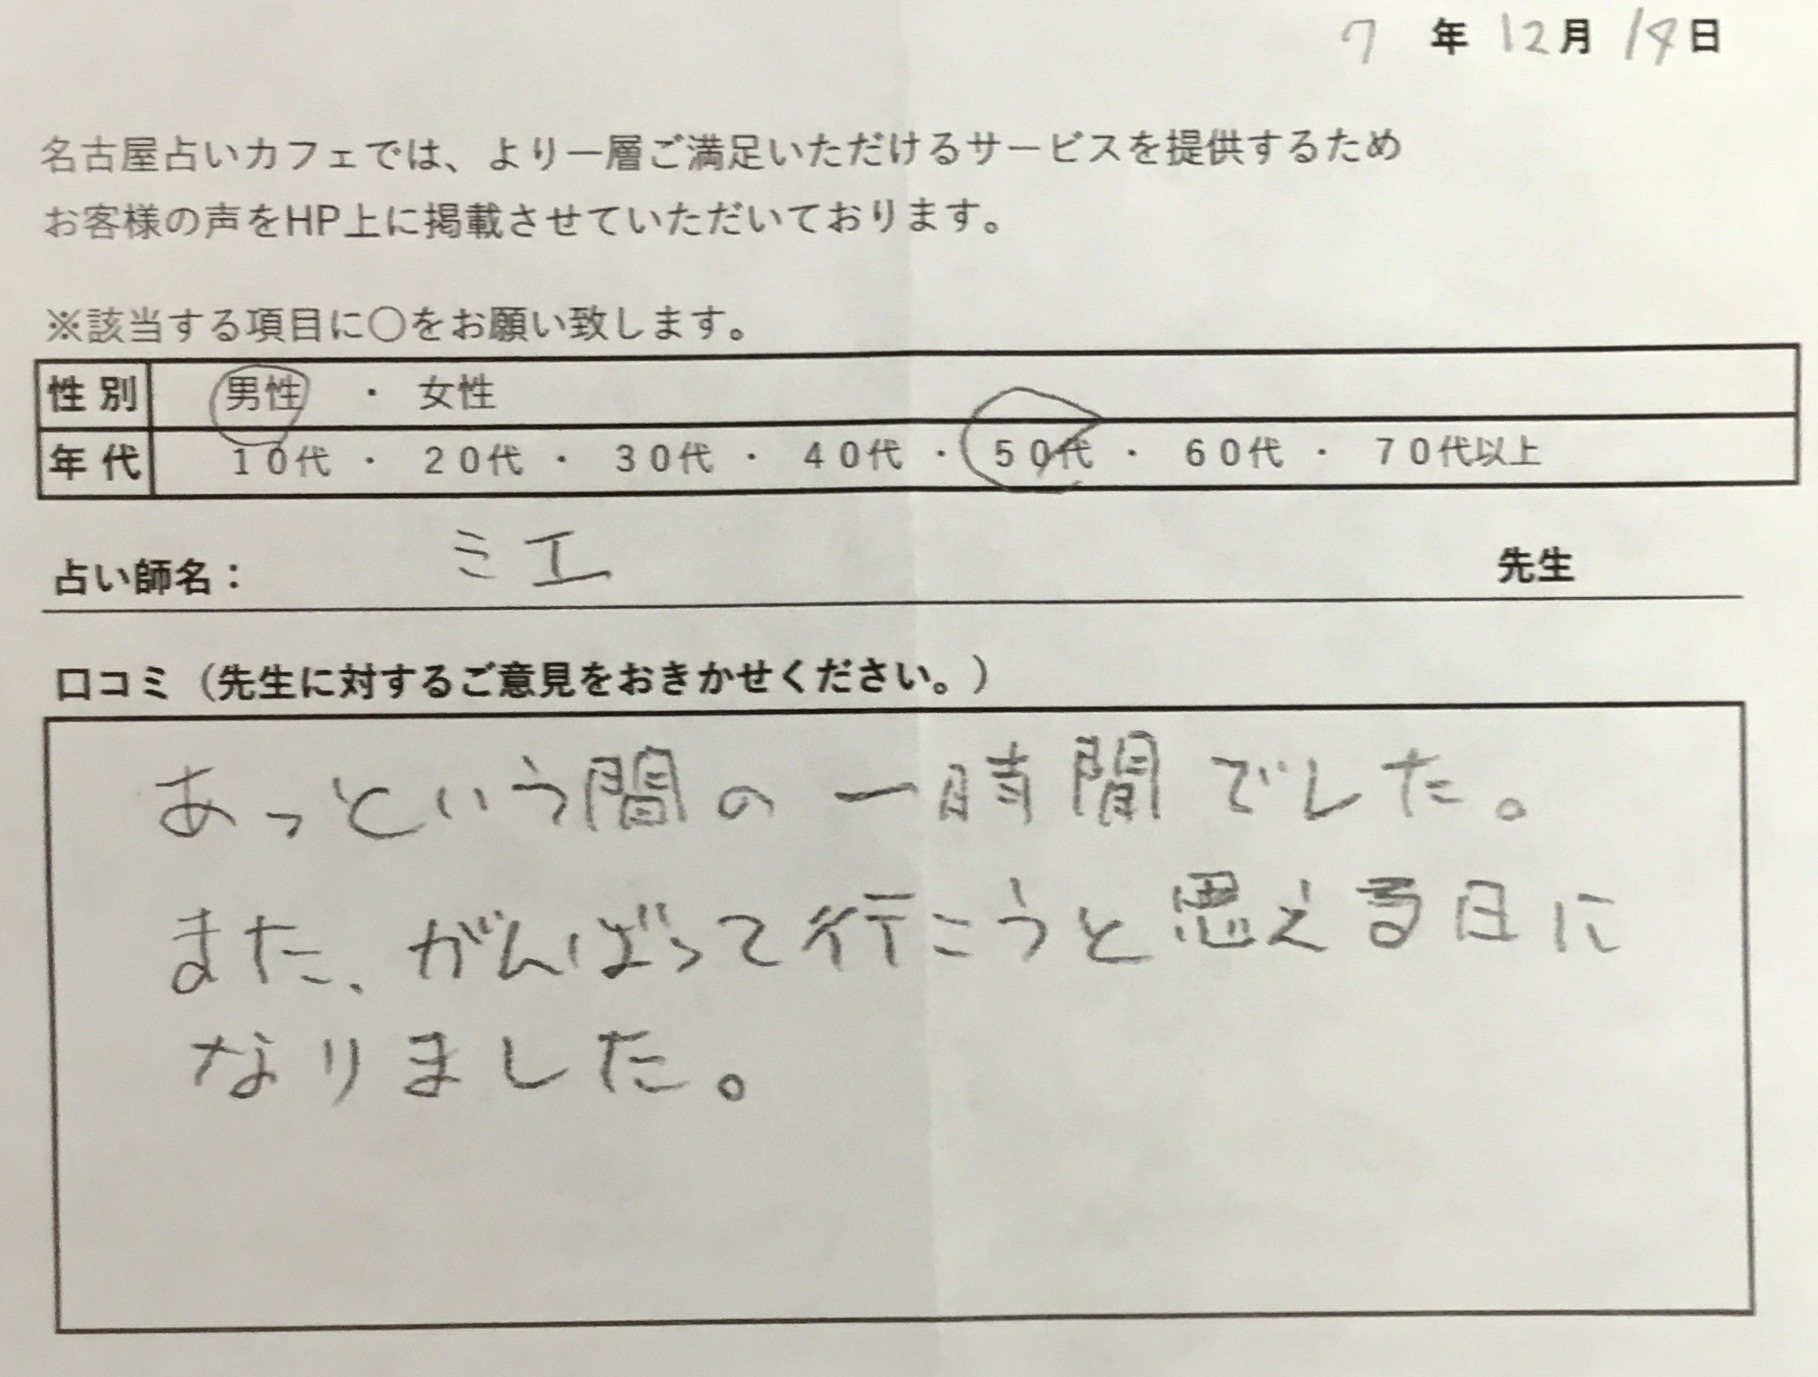 7 年 12月 14日
名古屋占いカフェでは、より一層ご満足いただけるサービスを提供するため
お客様の声をHP上に掲載させていただいております。
※該当する項目に〇をお願い致します。
性別 男性 ・ 女性
年代 10代 ・ 20代 ・ 30代 ・ 40代 ・ 50代 ・ 60代 ・ 70代以上
占い師名： ミエ 先生
口コミ（先生に対するご意見をおきかせください。）
あっという間の一時間でした。
また、がんばって行こうと思える日に
なりました。